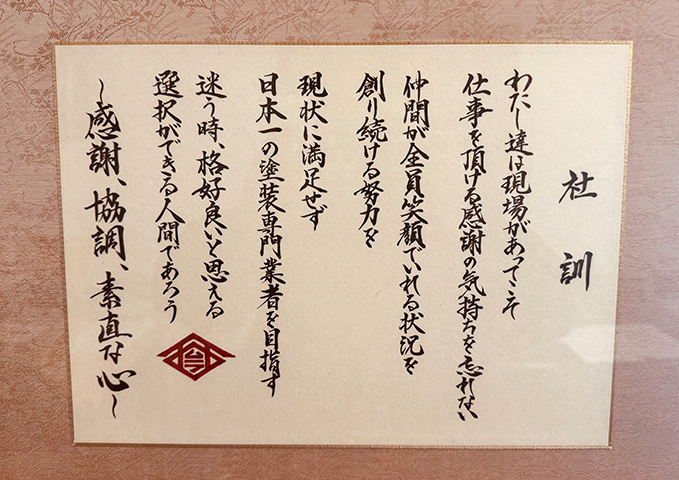 社訓
わたし達は現場があってこそ
仕事を頂ける感謝の気持ちを忘れない
仲間が全員笑顔でいれる状況を
創り続ける努力を
現状に満足せず
日本一の塗装専門業者を目指す
迷う時、格好良いと思える
選択ができる人間であろう
～感謝、協調、素直な心～